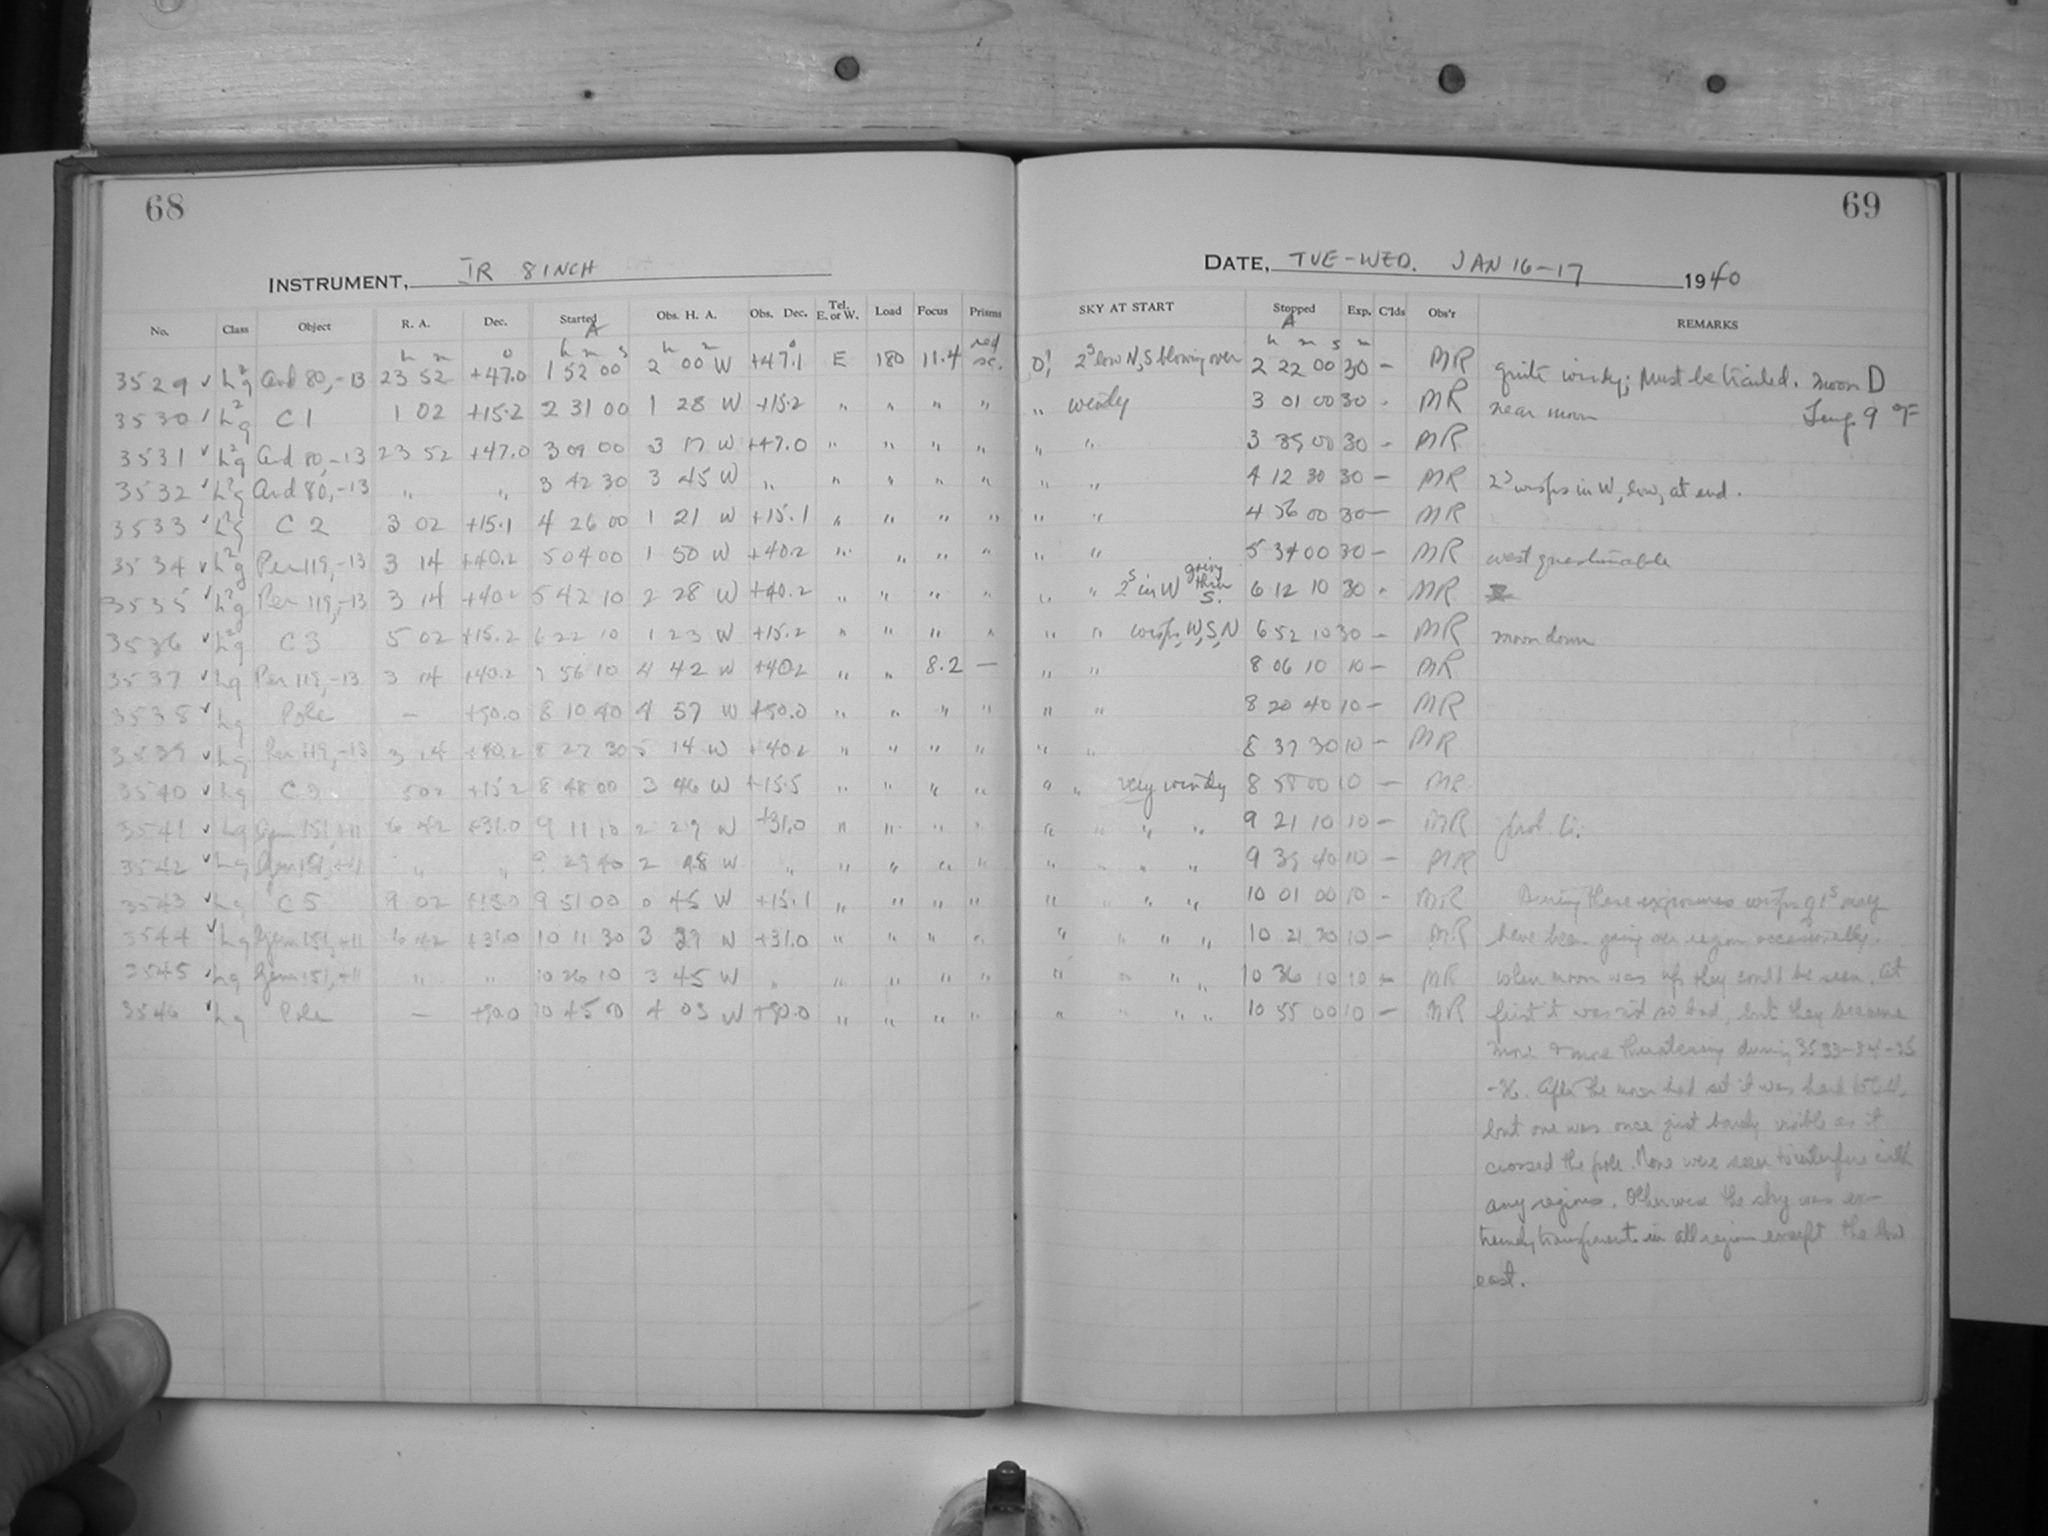 68
INSTRUMENT, IR 8 INCH
No. Class Object R. A. Dec. Started Obs. H. A. Obs. Dec. Tel. E. or W. Load Focus Prisms
A
h m o h m s h m o red
3529 ✓ L²g And 80,-13 23 52 +47.0 1 52 00 2 00 W +47.1 E 180 11.4 sc.
3530 ✓ L²g C 1 1 02 +15.2 2 31 00 1 28 W +15.2 " " " "
3531 ✓ L²g And 80,-13 23 52 +47.0 3 09 00 3 17 W +47.0 " " " "
3532 ✓ L²g And 80,-13 " " 3 42 30 3 45 W " " " " "
3533 ✓ L²g C 2 3 02 +15.1 4 26 00 1 21 W +15.1 " " " "
3534 ✓ L²g Per 119,-13 3 14 +40.2 5 04 00 1 50 W +40.2 " " " "
3535 ✓ L²g Per 119,-13 3 14 +40.2 5 42 10 2 28 W +40.2 " " " "
3536 ✓ L²g C 3 5 02 +15.2 6 22 10 1 23 W +15.2 " " " "
3537 ✓ Lg Per 119,-13 3 14 +40.2 7 56 10 4 42 W +40.2 " " 8.2 —
3538 ✓ Lg Pole — +90.0 8 10 40 4 57 W +90.0 " " " "
3539 ✓ Lg Per 119,-13 3 14 +40.2 8 27 30 5 14 W +40.2 " " " "
3540 ✓ Lg C 3 5 02 +15.2 8 48 00 3 46 W +15.5 " " " "
3541 ✓ Lg Gem 151,+11 6 42 +31.0 9 11 10 2 29 W +31.0 " " " "
3542 ✓ Lg Gem 151,+11 " " 9 29 40 2 48 W " " " " "
3543 ✓ Lg C 5 9 02 +15.0 9 51 00 0 45 W +15.1 " " " "
3544 ✓ Lg Gem 151,+11 6 42 +31.0 10 11 30 3 29 W +31.0 " " " "
3545 ✓ Lg Gem 151,+11 " " 10 26 10 3 45 W " " " " "
3546 ✓ Lg Pole — +90.0 10 45 00 4 03 W +90.0 " " " "
69
DATE, TUE-WED. JAN 16-17 1940
SKY AT START Stopped Exp. C'lds Obs'r REMARKS
A
h m s m
2ˢ low N, S blowing over 2 22 00 30 — MR quite windy; Must be trailed. moon D
" windy 3 01 00 30 - MR near moon Temp. 9 °F
" " 3 39 00 30 — MR
" " 4 12 30 30 — MR 2ˢ wisps in W, low, at end.
" " 4 56 00 30 — MR
" " 5 34 00 30 — MR west questionable
" " 2ˢ in W going thru S. 6 12 10 30 - MR
" " wisps, W, S, N 6 52 10 30 — MR moon down
" " 8 06 10 10 — MR
" " 8 20 40 10 — MR
" " 8 37 30 10 — MR
" " very windy 8 58 00 10 — MR
" " " " 9 21 10 10 — MR
" " " " 9 39 40 10 — MR
" " " " 10 01 00 10 - MR During these exposures wisps of 1ˢ may
" " " " 10 21 30 10 — MR have been going over region occasionally.
" " " " 10 36 10 10 — MR When moon was up they could be seen. At
" " " " 10 55 00 10 — MR first it was not so bad, but they became
more & more threatening during 3533-34-35
-36. After the moon had set it was hard to tell,
but one was once just barely visible as it
crossed the pole. None were seen to interfere with
any regions. Otherwise the sky was ex-
tremely transparent in all regions except the low
east.